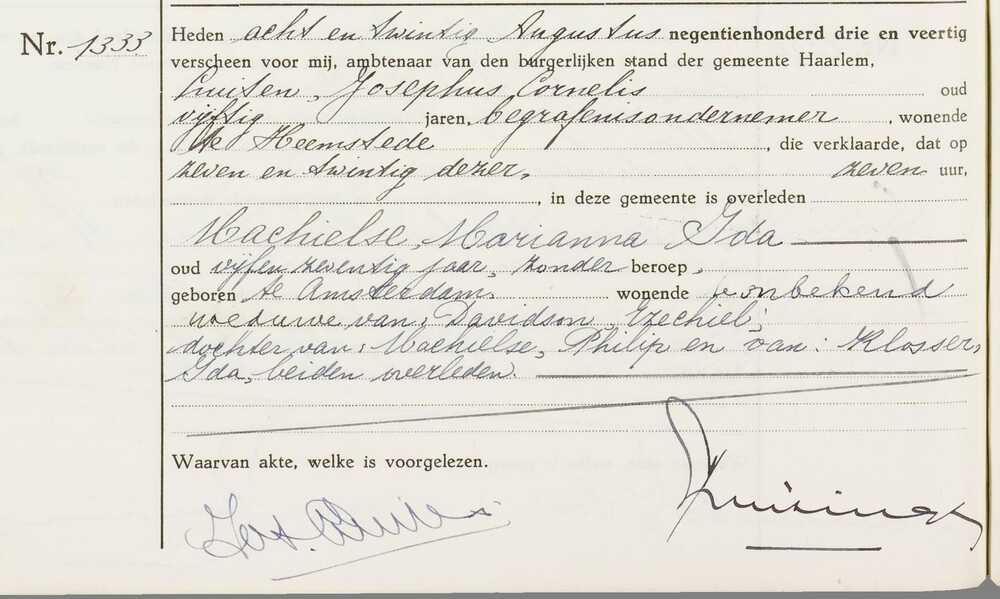 Nr. 1333
Heden acht en twintig Augustus negentienhonderd drie en veertig
verscheen voor mij, ambtenaar van den burgerlijken stand der gemeente Haarlem,
Cruisen, Josephus Cornelis oud
vijftig jaren, begrafenisondernemer, wonende
te Heemstede, die verklaarde, dat op
zeven en twintig dezer, zeven uur,
, in deze gemeente is overleden
Machielse, Marianna Ida
oud vijfenzeventig jaar, zonder beroep,
geboren te Amsterdam, wonende onbekend
weduwe van: Davidson, Ezechiel;
dochter van: Machielse, Philip en van: Klosser,
Ida, beiden overleden.
Waarvan akte, welke is voorgelezen.